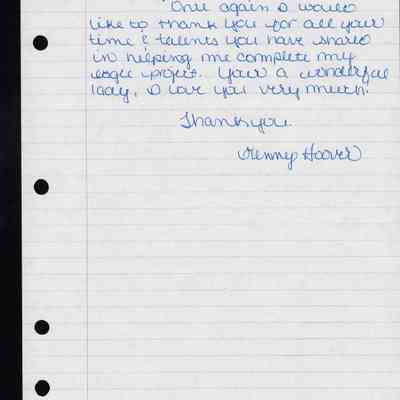 Once again I would
like to thank you for all your
time & talents you have shared
in helping me complete my
eagle project. Your a wonderful
lady, I love you very much.
Thankyou
Henny Hoover